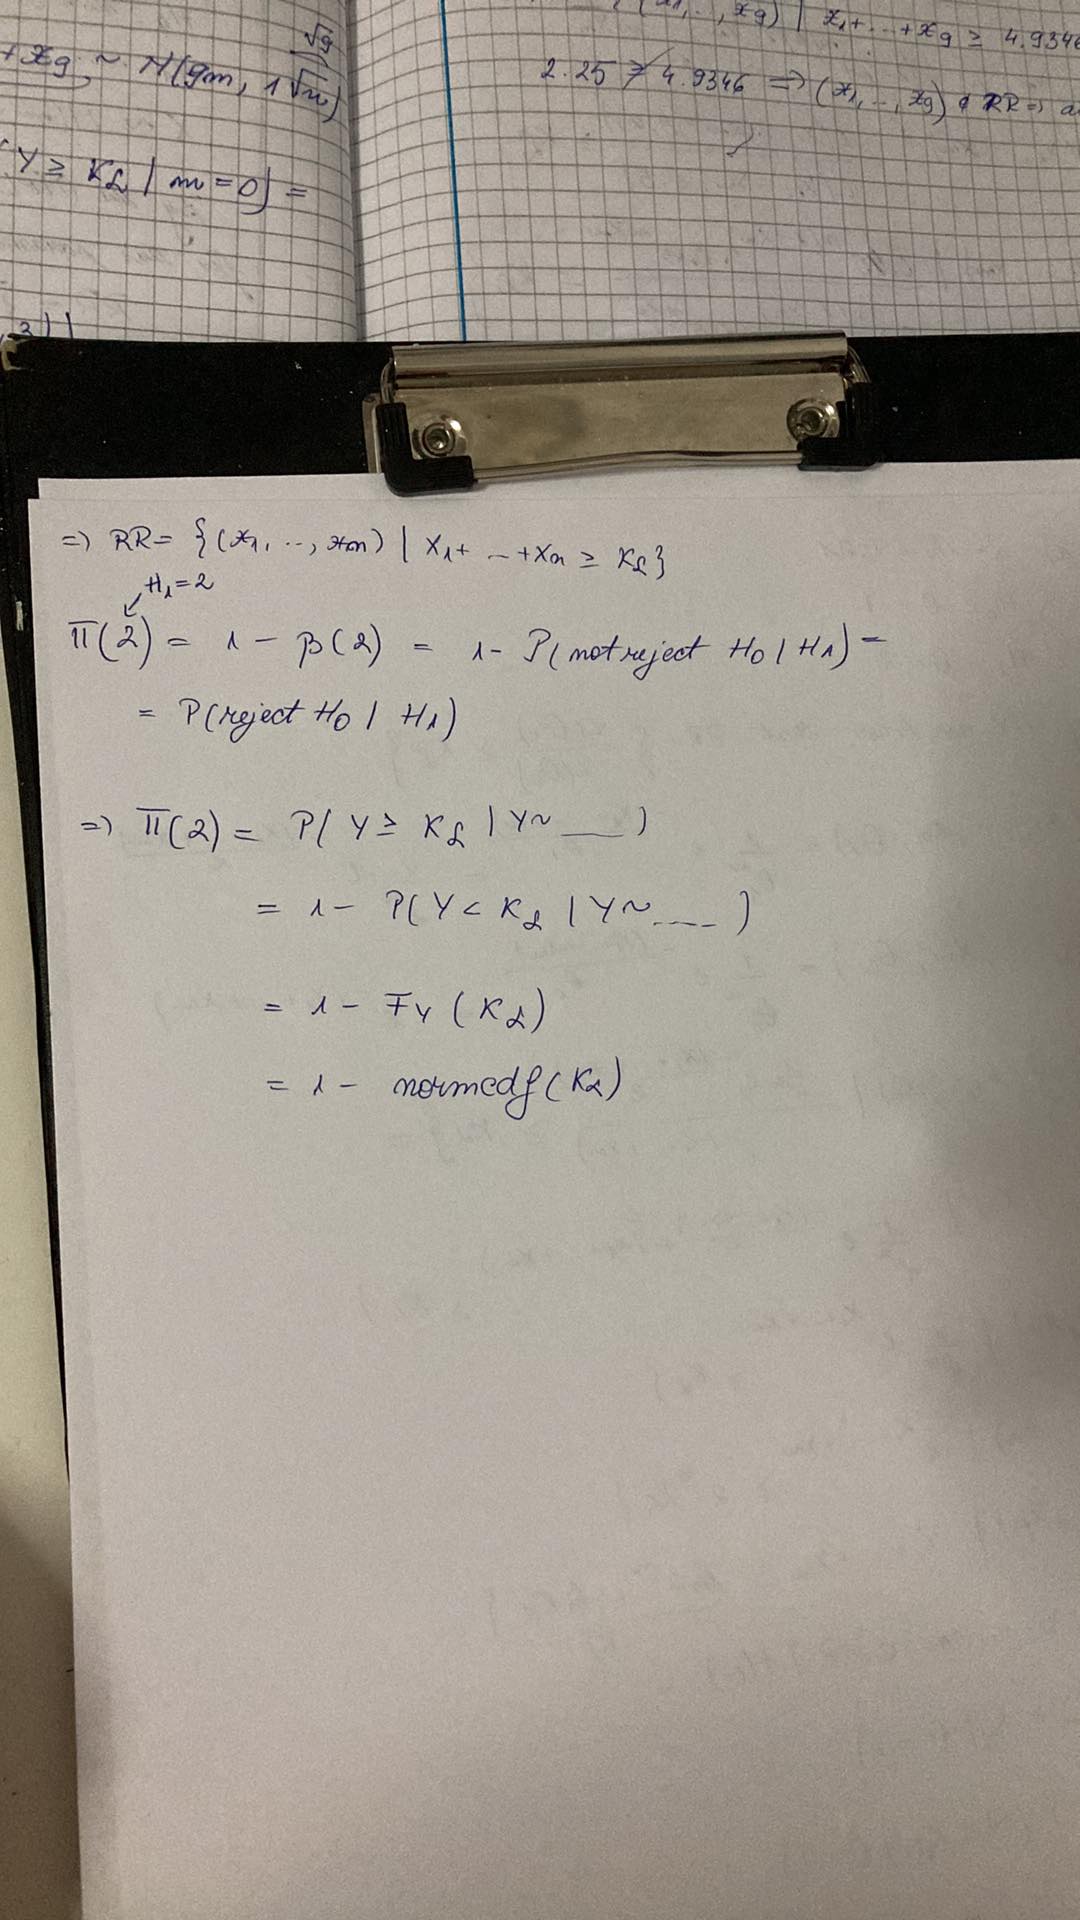 + xg ~ N(gm, 1√n)
√g
Y ≥ Kα | m = 0) =
3))
(x1, .., xg) | x1+ ... +xg ≥ 4.9346
2.25 ≱ 4.9346 => (x1, .., xg) ∉ RR =>
=> RR = {(x1, .., xn) | x1+ ... +xn ≥ Kα}
H1=2
Π(2) = 1 - β(2) = 1 - P(not reject H0 | H1) =
= P(reject H0 | H1)
=> Π(2) = P(Y ≥ Kα | Y~ ___)
= 1 - P(Y < Kα | Y~ ___)
= 1 - FY (Kα)
= 1 - normcdf(Kα)